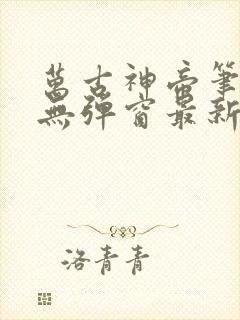 萬古神帝筆
無彈窗最新
洛青青